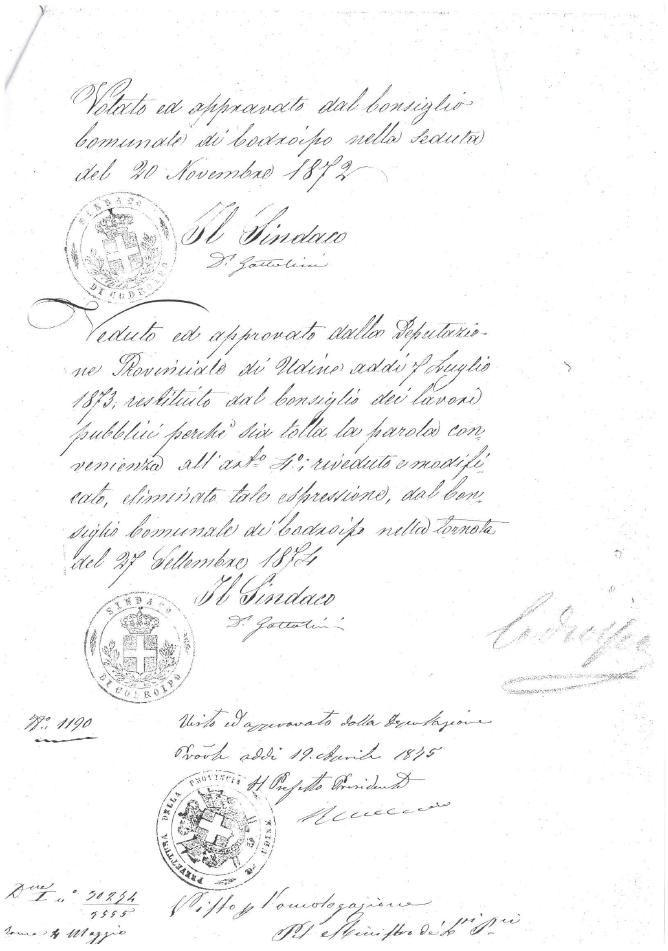 Votato ed approvato dal Consiglio
Comunale di Codroipo nella seduta
del 20 Novembre 1872
SINDACO
DI CODROIPO
Il Sindaco
Dr. Gattolini
Veduto ed approvato dalla Deputazio-
ne Provinciale di Udine addi 7 Luglio
1873, restituito dal Consiglio dei lavori
pubblici perchè sia tolta la parola con-
venienza all'arto. 4°; riveduto e modifi-
cato, eliminato tale espressione, dal Con-
siglio Comunale di Codroipo nella tornata
del 27 Settembre 1874
Il Sindaco
Dr. Gattolini
SINDACO
DI CODROIPO
Codroipo
No. 1190
Visto ed approvato dalla Deputazione
Provle addi 19 Aprile 1875
Il Prefetto Presidente
PREFETTURA DELLA PROVINCIA
Visto p l'omologazione
Roma 4 Maggio
Pel Ministro dei